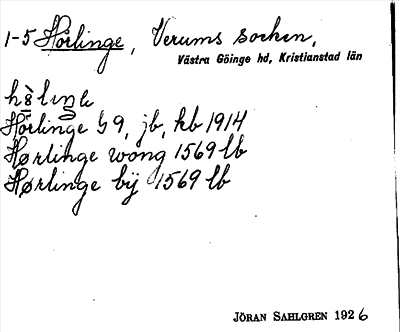 1-5 Hörlinge, Verums socken,
Västra Göinge hd, Kristianstad län
Hörlinge 59, jb, kb 1914
Hørlinge wong 1569 lb
Hørlinge bÿ 1569 lb
JÖRAN SAHLGREN 1926